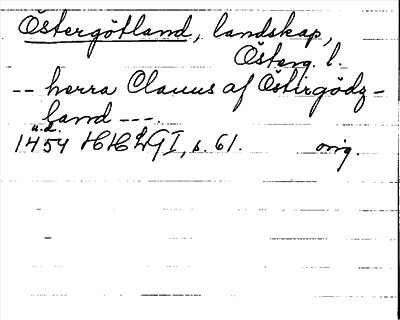 Östergötland, landskap,
Österg. l.
-- herra Clauus af Östirgödz-
land ---.
u.d.
1454 HHLGI, s. 61. orig.